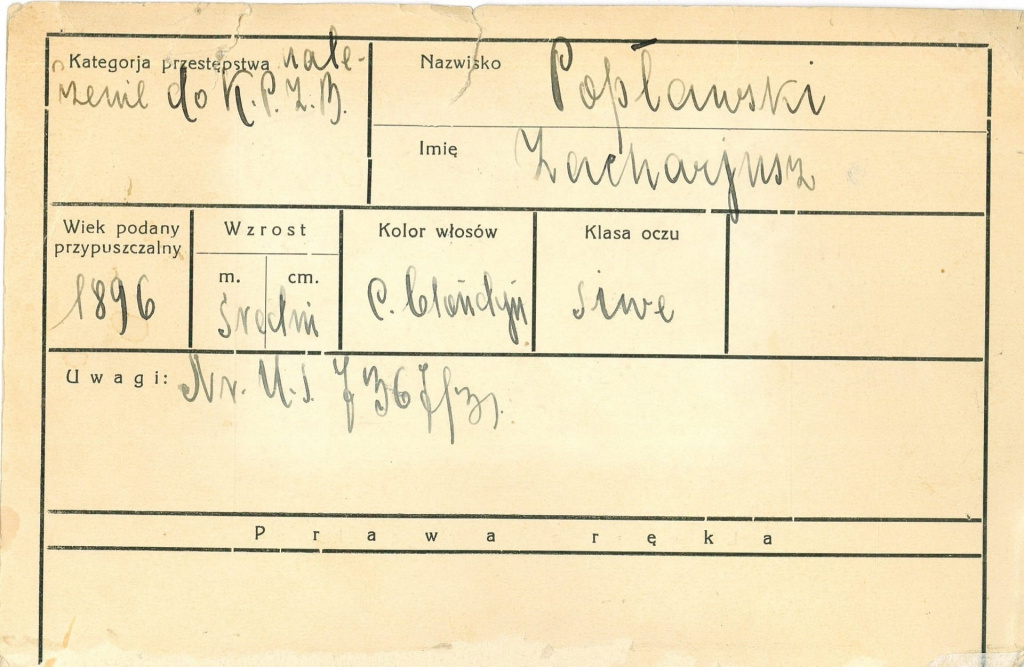 Kategorja przestępstwa nale-
żenie do K.P.Z.B.
Nazwisko Popławski
Imię Zacharjusz
Wiek podany
przypuszczalny
1896
Wzrost
m. cm.
średni
Kolor włosów
c. blondyn
Klasa oczu
siwe
Uwagi: Nr. U.S.
Prawa ręka